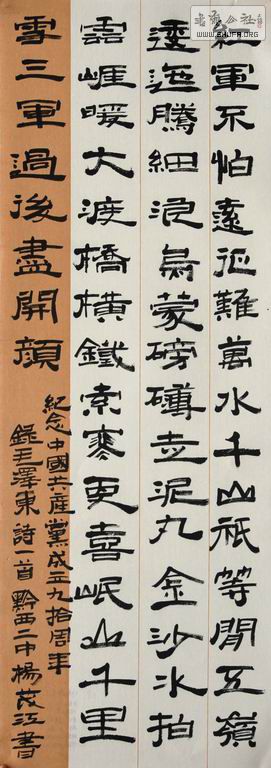 紅軍不怕遠征難萬水千山祇等閒五嶺
逶迤騰細浪烏蒙磅礴走泥丸金沙水拍
雲崕暖大渡橋橫鐵索寒更喜岷山千里
雪三軍過後盡開顏
紀念中國共產黨成立九拾周年
錄毛澤東詩一首黔西二中楊茂江書
WWW.SHUFA.ORG